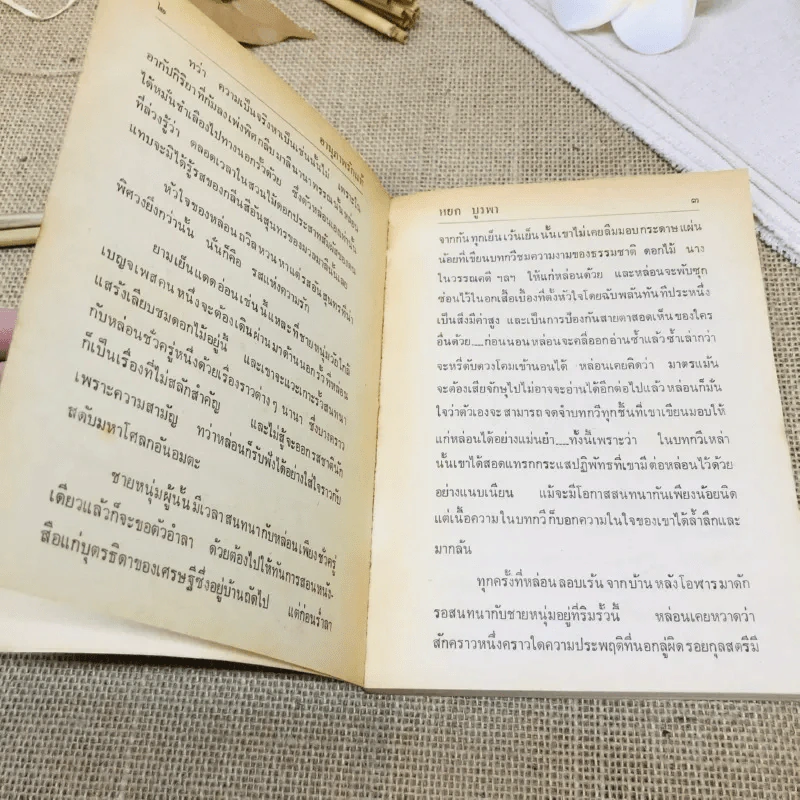 ๒
อานุภาพรักแท้
ทว่า ความเป็นจริงหาเป็นเช่นนั้นไม่ เพราะใน
อากัปกิริยาที่ก้มลงเพ่งพิศกลีบมาลีนานาพรรณนั้น หล่อน
ได้หมั่นชำเลืองไปทางนอกรั้วด้วย ซึ่งตัวหล่อนเองเท่านั้น
ที่ล่วงรู้ว่า ตลอดเวลาในสวนไม้ดอกประสงค์สัมผัสของหล่อน
แทบจะมิได้รู้รสของกลิ่นสีอันสุนทรของมวลมาลีนั้นเลย
หัวใจของหล่อนถวิลหวนหาแต่รสอันสุนทรที่น่า
พิศวงยิ่งกว่านั้น นั่นก็คือ รสแห่งความรัก
ยามเย็นแดดอ่อนเช่นนี้แหละที่ชายหนุ่มวัยใกล้
เบญจเพสคนหนึ่งจะต้องเดินผ่านมาด้านนอกรั้วที่หล่อน
แสร้งเลียบชมดอกไม้อยู่นี้ และเขาจะแวะเกาะรั้วสนทนา
กับหล่อนชั่วครู่หนึ่งด้วยเรื่องราวต่าง ๆ นานา ซึ่งบางคราว
ก็เป็นเรื่องที่ไม่สลักสำคัญ และไม่สู้จะออกรสชาตินัก
เพราะความสามัญ ทว่าหล่อนก็รับฟังได้อย่างใส่ใจราวกับ
สดับมหาโศลกอันอมตะ
ชายหนุ่มผู้นั้นมีเวลาสนทนากับหล่อนเพียงชั่วครู่
เดียวแล้วก็จะขอตัวอำลา ด้วยต้องไปให้ทันการสอนหนัง-
สือแก่บุตรธิดาของเศรษฐีซึ่งอยู่บ้านถัดไป แต่ก่อนร่ำลา
หยก บูรพา
๓
จากกันทุกเย็นเว้นเย็นนั้นเขาไม่เคยลืมมอบกระดาษแผ่น
น้อยที่เขียนบทกวีชมความงามของธรรมชาติ ดอกไม้ นาง
ในวรรณคดี ฯลฯ ให้แก่หล่อนด้วย และหล่อนจะพับซุก
ซ่อนไว้ในอกเสื้อเบื้องที่ตั้งหัวใจโดยฉับพลันทันทีประหนึ่ง
เป็นสิ่งมีค่าสูง และเป็นการป้องกันสายตาสอดเห็นของใคร
อื่นด้วย.....ก่อนนอนหล่อนจะคลี่ออกอ่านซ้ำแล้วซ้ำเล่ากว่า
จะหรี่ดับดวงโคมเข้านอนได้ หล่อนเคยคิดว่า มาตรแม้น
จะต้องเสียจักษุไปไม่อาจจะอ่านได้อีกต่อไปแล้วหล่อนก็มั่น
ใจว่าตัวเองจะสามารถจดจำบทกวีทุกชิ้นที่เขาเขียนมอบให้
แก่หล่อนได้อย่างแม่นยำ.....ทั้งนี้เพราะว่า ในบทกวีเหล่า
นั้นเขาได้สอดแทรกกระแสปฏิพัทธที่เขามีต่อหล่อนไว้ด้วย
อย่างแนบเนียน แม้จะมีโอกาสสนทนากันเพียงน้อยนิด
แต่เนื้อความในบทกวีก็บอกความในใจของเขาได้ล้ำลึกและ
มากล้น
ทุกครั้งที่หล่อนลอบเร้นจากบ้านหลังโอฬารมาดัก
รอสนทนากับชายหนุ่มอยู่ที่ริมรั้วนี้ หล่อนเคยหวาดว่า
สักคราวหนึ่งคราวใดความประพฤติที่นอกลู่ผิดรอยกุลสตรีมี